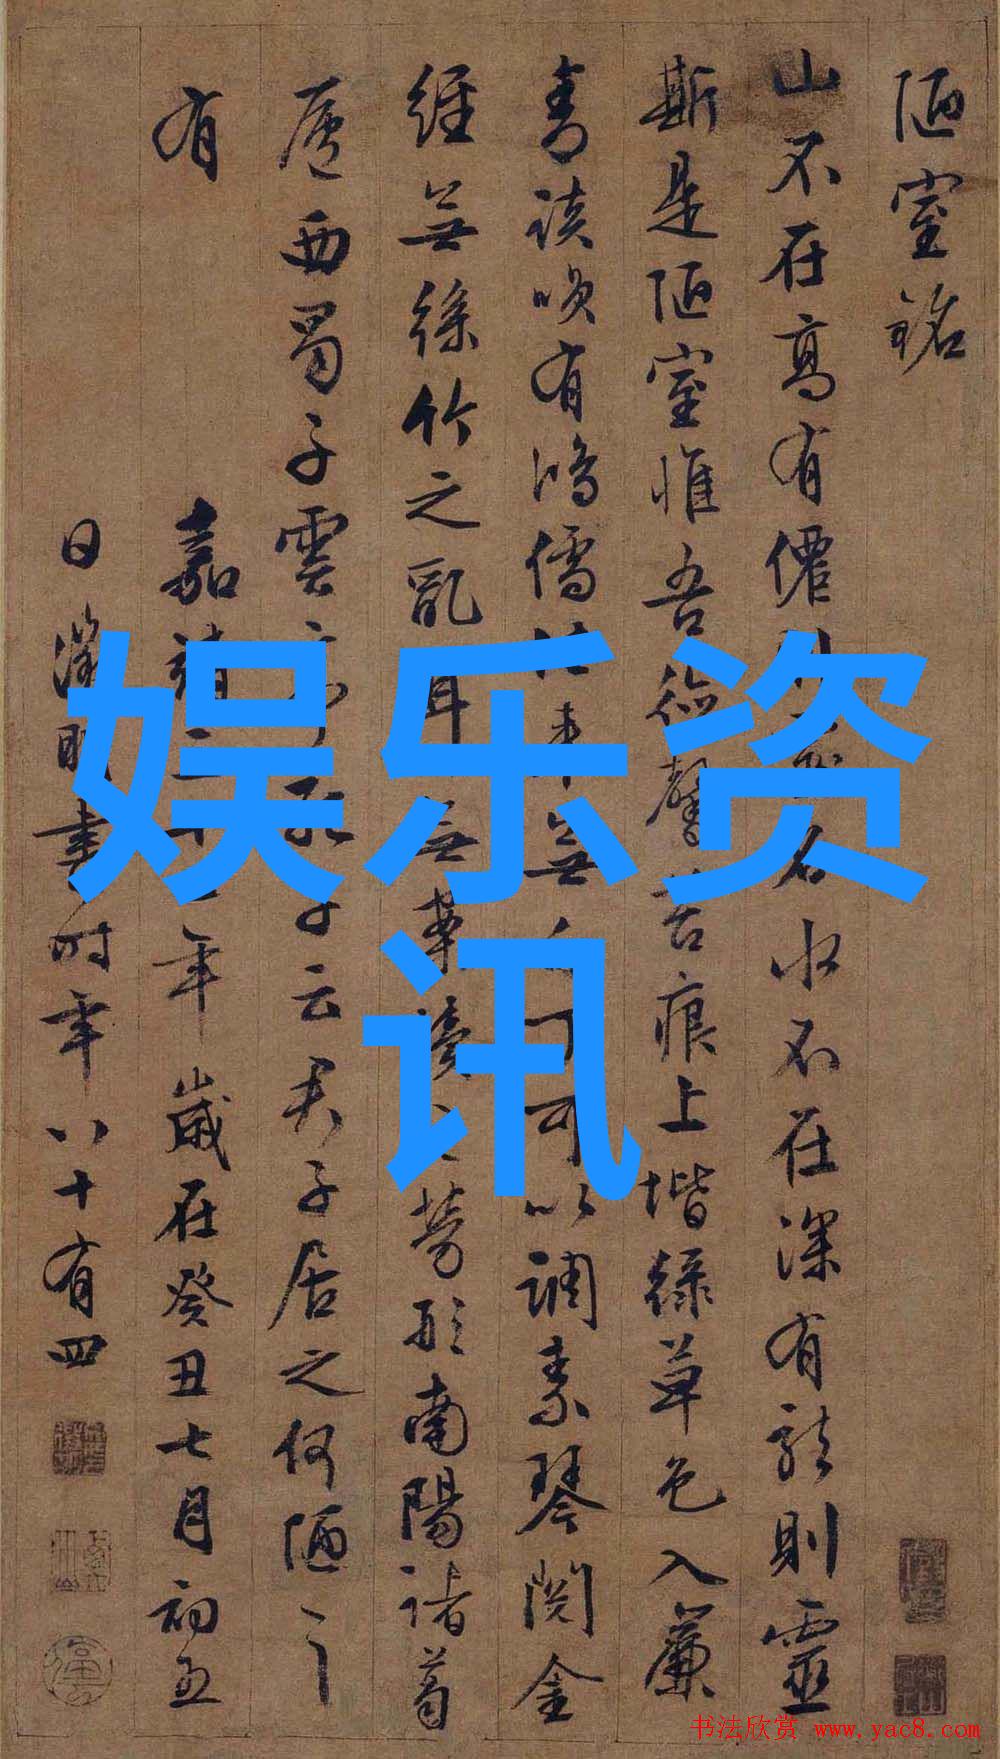 陋室銘
山不在高有僊則名水不在深有龍則靈
斯是陋室惟吾德馨苔痕上堦綠草色入簾
青談咲有鴻儒往來無白丁可以調素琴閱金
經無絲竹之亂耳無案牘之勞形南陽諸葛
廬西蜀子雲亭孔子云君子居之何陋之
有
嘉靖三十二年歲在癸丑七月初五
日徵明書時年八十有四
娱乐资
讯
书法欣赏 www.yac8.com